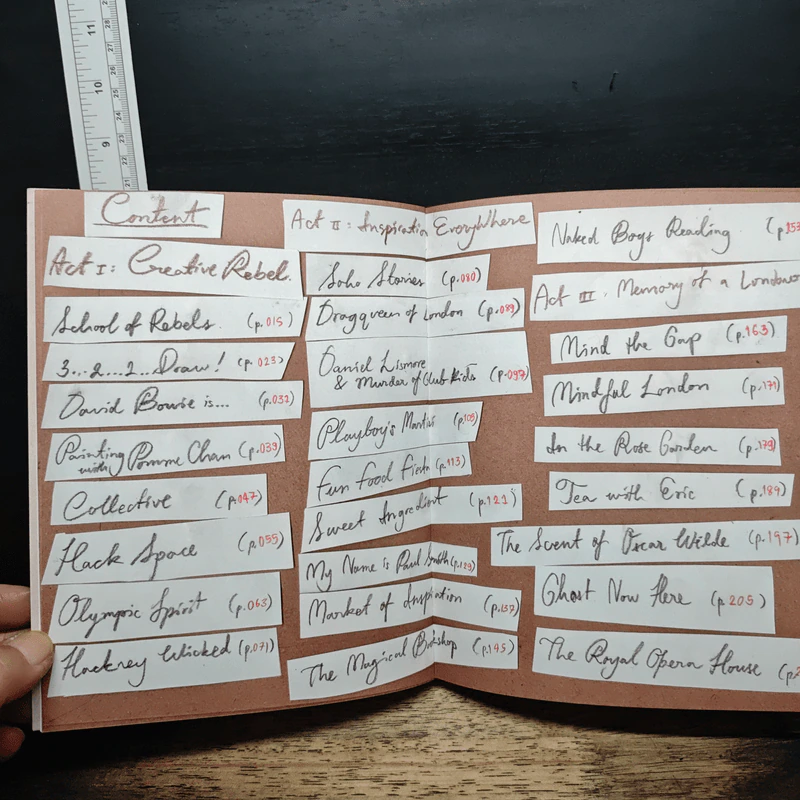 Content
Act I: Creative Rebel.
School of Rebels. (p.015)
3...2...2...Draw! (p.023)
David Bowie is... (p.031)
Painting
with Pomme Chan (p.039)
Collective (p.047)
Hack Space (p.055)
Olympic Spirit (p.063)
Hackney Wicked (p.071)
Act II: Inspiration EveryWhere
Soho Stories (p.080)
Dragqueen of London (p.089)
Daniel Lismore
& Murder of Club Kids (p.097)
Playboy's Martini (p.105)
Fun Food Fiesta (p.113)
Sweet Ingredient (p.121)
My Name is Paul Smith (p.129)
Market of Inspiration (p.137)
The Magical Bookshop (p.145)
Naked Boys Reading (p.153
Act III: Memory of a
Mind the Gap (p.163)
Mindful London (p.171)
In the Rose Garden (p.179)
Tea with Eric (p.189)
The Scent of Oscar Wilde (p.197)
Ghost Now Here (p.205)
The Royal Opera House (p.2
11
10
9
28
27
26
25
24
23
22
21